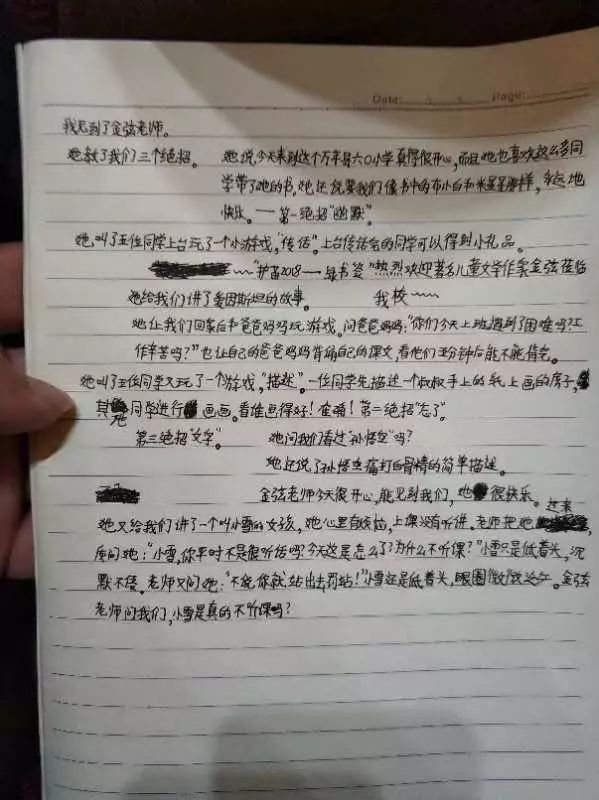 Date: Page:
我见到了金弦老师。
她教了我们三个绝招。 她说今天来到这个万年县六〇小学真得很开心,而且她也喜欢这么多同
学带了她的书,她还说要我们像书中的布小白和米星星那样,永远地
快乐。——第一绝招"幽默"。
她叫了五位同学上台玩了一个小游戏,"传话"。上台传话完的同学可以得到小礼品。
~~"护苗2018——绿书签"热烈欢迎著名儿童文学作家金弦莅临
她给我们讲了爱因斯坦的故事。 我校~~~
她让我们回家后和爸爸妈妈玩游戏。问爸爸妈妈:"你们今天上班遇到了困难吗?工
作辛苦吗?"也让自己的爸爸妈妈背诵自己的课文,看他们五分钟后能不能背完。
她叫了五位同学又玩了一个游戏,"描述"。一位同学先描述一个叔叔手上的纸上画的房子,
其他同学进行画画。看谁画得好!准确!第二绝招"忘了"。
第三绝招"文字"。 她问我们看过"孙悟空"吗?
她还说了孙悟空痛打白骨精的简单描述。
金弦老师今天很开心,能见到我们,她很快乐。
过来
她又给我们讲了一个叫小雪的女孩,她心里有烦恼,上课没有听进。老师把她,
质问她:"小雪,你平时不是很听话吗?今天这是怎么了?为什么不听课?"小雪只是低着头,沉
默不语。老师又问她:"不说你就站出去罚站!"小雪还是低着头,眼圈微微。金弦
老师问我们,小雪是真的不听课吗?